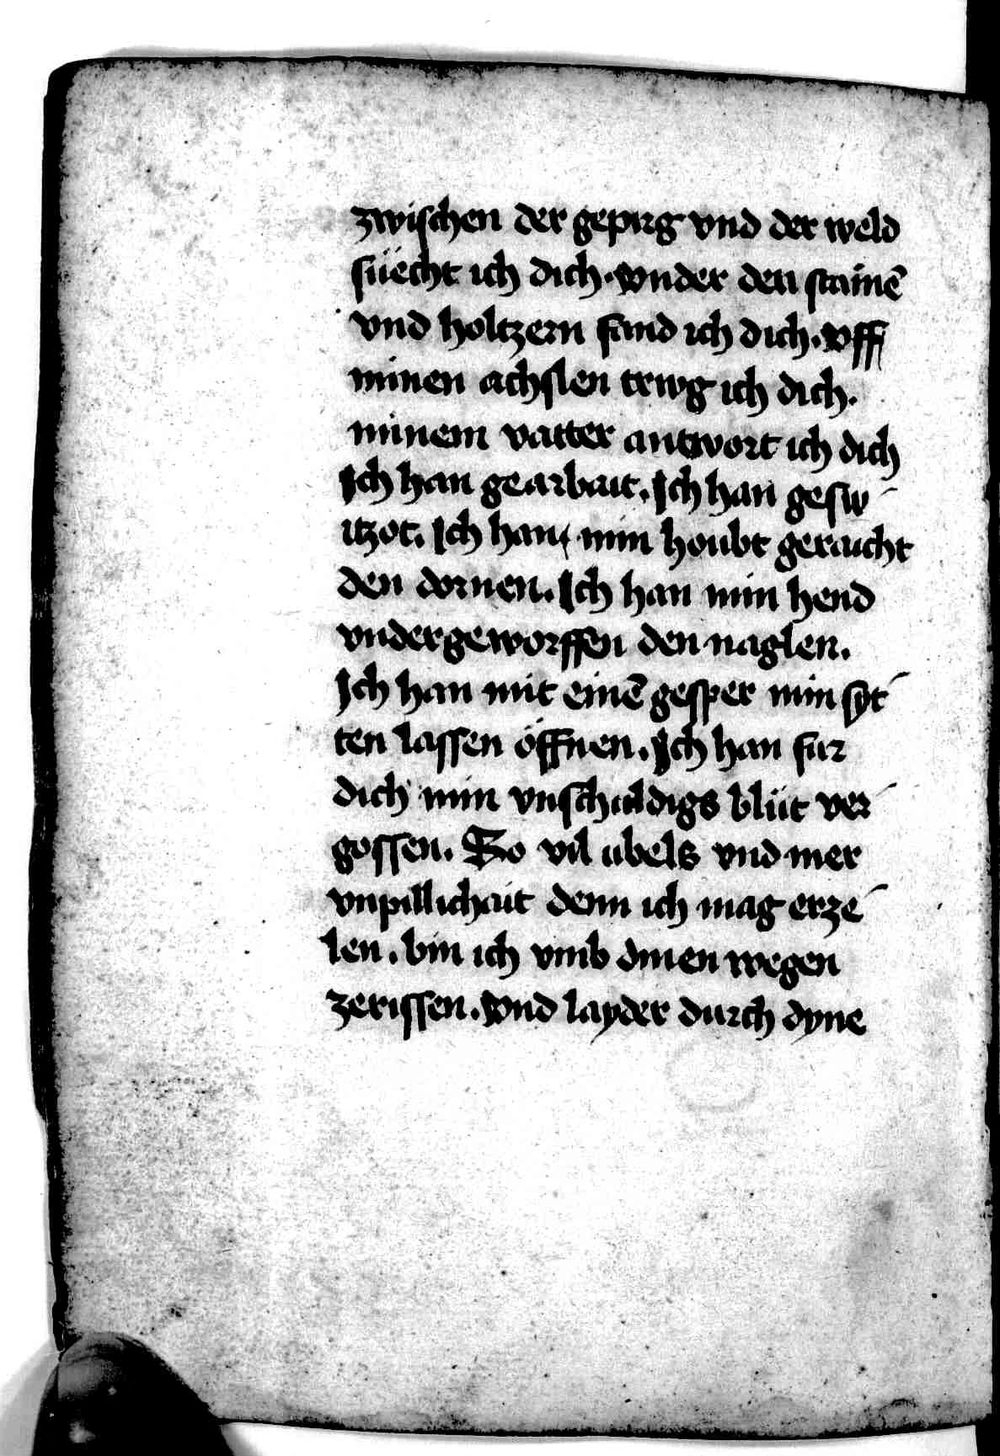 zwischen der gepirg vnd der weld
süecht ich dich. vnder den stainē
vnd holtzern fand ich dich. vff
minen achslen trwg ich dich.
minem vatter antwort ich dich
Ich han gearbait. Ich han gesw
itzot. Ich han min houbt geraicht
den dornen. Ich han min hend
vndergeworffen den naglen.
Ich han mit einē gesper min syt
ten lassen öffnen. Ich han für
dich min vnschuldigs blüt ver
gossen. So vil übels vnd mer
vnpillichait denn ich mag erze
len. bin ich vmb dinen wegen
zerissen. Vnd layder durch dyne